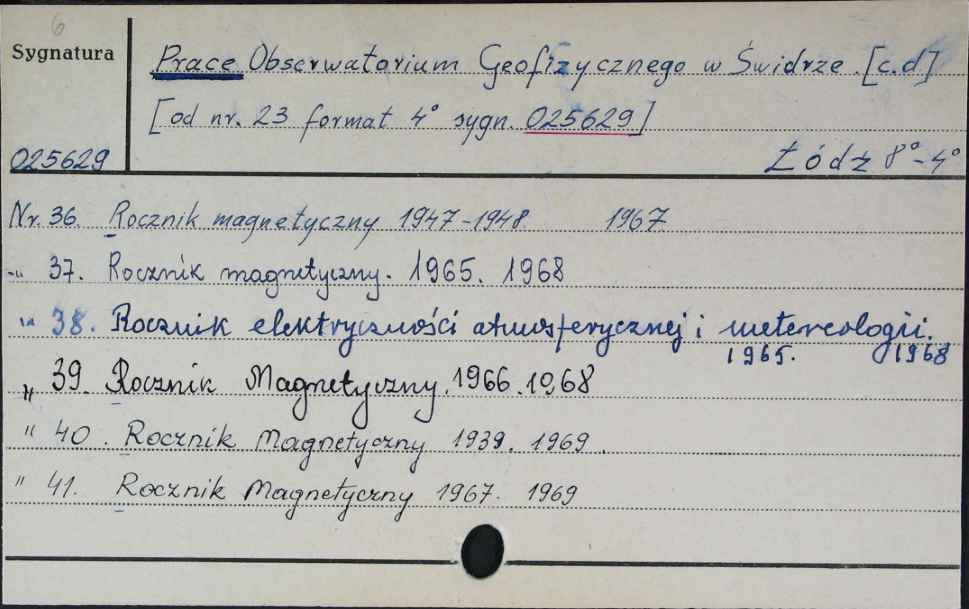 6
Sygnatura
Prace Obserwatorium Geofizycznego w Świdrze. [c.d]
[od nr. 23 format 4° sygn. 025629]
025629
Łódź 8°-4°
Nr. 36. Rocznik magnetyczny 1947-1948. 1967
-„- 37. Rocznik magnetyczny. 1965. 1968
„ 38. Rocznik elektryczności atmosferycznej i metereologii.
1965. 1968
„ 39. Rocznik Magnetyczny. 1966. 1968
" 40. Rocznik Magnetyczny 1939. 1969.
" 41. Rocznik Magnetyczny 1967. 1969